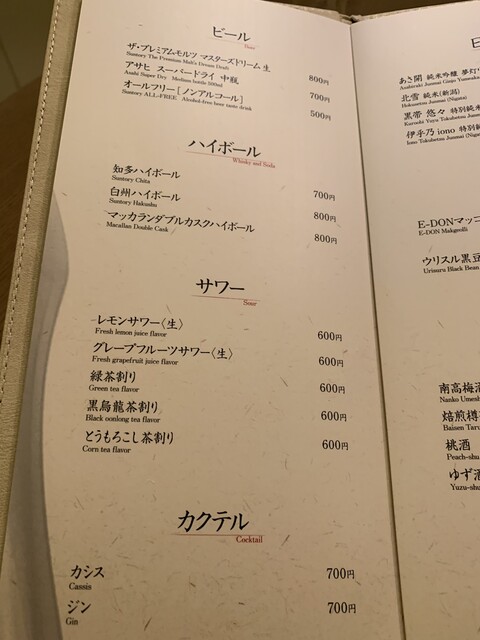 ビール
Beer
ザ・プレミアムモルツ マスターズドリーム 生
Suntory The Premium Malt's Dream Draft
800円
アサヒ スーパードライ 中瓶
Asahi Super Dry Medium bottle 500ml
700円
オールフリー［ノンアルコール］
Suntory ALL-FREE Alcohol-free beer taste drink
500円
ハイボール
Whisky and Soda
知多ハイボール
Suntory Chita
700円
白州ハイボール
Suntory Hakushu
800円
マッカランダブルカスクハイボール
Macallan Double Cask
800円
サワー
Sour
レモンサワー〈生〉
Fresh lemon juice flavor
600円
グレープフルーツサワー〈生〉
Fresh grapefruit juice flavor
600円
緑茶割り
Green tea flavor
600円
黒烏龍茶割り
Black oonlong tea flavor
600円
とうもろこし茶割り
Corn tea flavor
600円
カクテル
Cocktail
カシス
Cassis
700円
ジン
Gin
700円
あさ開 純米吟醸 夢灯り
Asabiraki Junmai Ginjo
北雪 純米(新潟)
Hokusetsu Junmai (Nigata)
黒帯 悠々 特別純米
Kuroobi Yuyu Tokubetsu Junmai
伊乎乃 iono 特別純米
Iono Tokubetsu Junmai (Niga
E-DONマッコ
E-DON Makgeolli
ウリスル黒豆
Urisuru Black Bean
南高梅酒
Nanko Umesh
焙煎樽
Baisen Taru
桃酒
Peach-shu
ゆず酒
Yuzu-shu